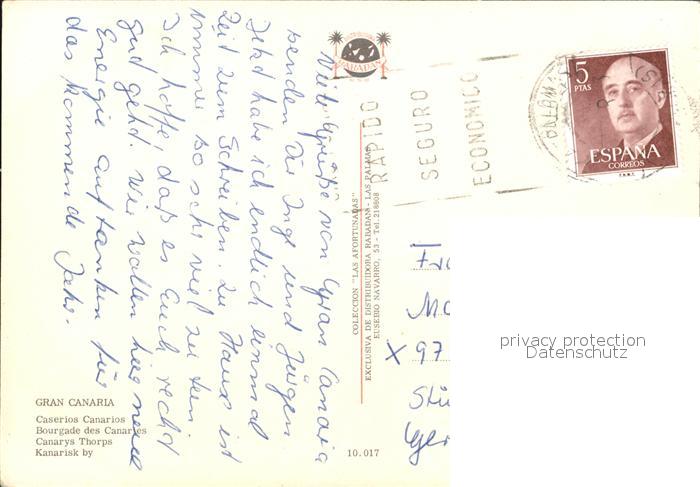 Viele Grüße von Gran Canaria
senden Dir Inge und Jürgen
Jetzt habe ich endlich einmal
Zeit zum Schreiben. Zu Haus ist
immer so viel zu tun
Ich hoffe, daß es Euch recht
gut geht. Wir wollen hier neue
Energie auftanken für
das kommende Jahr.
RABADAN
RAPIDO
SEGURO
ECONOMICO
5
PTAS
ESPAÑA
CORREOS
F.N.M.T.
COLECCION "LAS AFORTUNADAS"
EXCLUSIVA DE DISTRIBUIDORA RABADAN - LAS PALMAS
EUSEBIO NAVARRO, 53 - Tel. 218808
X 97
privacy protection
Datenschutz
GRAN CANARIA
Caserios Canarios
Bourgade des Canaries
Canarys Thorps
Kanarisk by
10.017